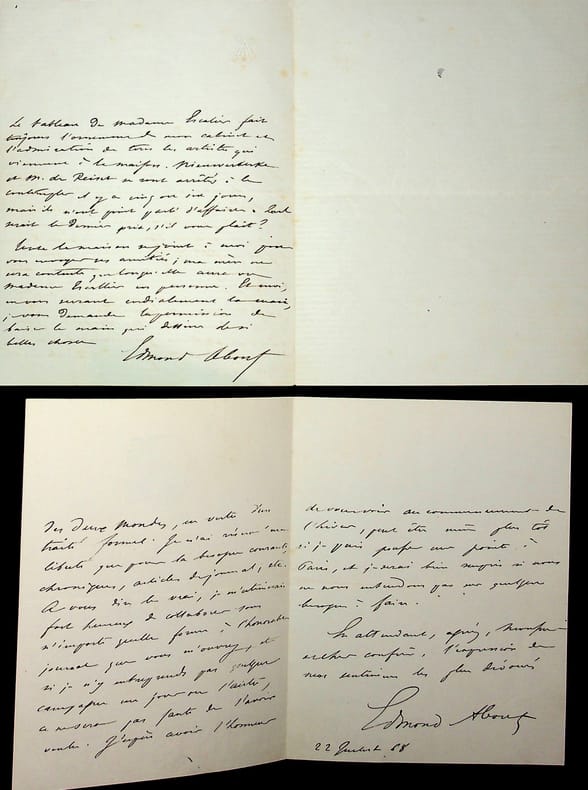 Le tableau de madame Escalier fait
toujours l'ornement de mon cabinet et
l'admiration de tous les artistes qui
viennent à la maison. Nieuwerkerke
et M. de Reiset se sont arrêtés à le
contempler il y a cinq ou six jours,
mais ils n'ont point parlé d'affaires. Quel
serait le dernier prix, s'il vous plait?
Toute la maison se joint à moi pour
vous envoyer ses amitiés; ma mère ne
sera contente que lorsqu'elle aura vu
madame Escallier en personne. Et moi,
en vous serrant cordialement la main,
je vous demande la permission de
baiser la main qui dessine de si
belles choses
Edmond About
des Deux Mondes, en vertu d'un
traité formel. Je n'ai réservé ma
liberté que pour la besogne courante,
chroniques, articles de journal, etc.
A vous dire le vrai, je m'estimerais
fort heureux de collaborer sous
n'importe quelle forme à l'honorable
journal que vous m'ouvrez, et
si je n'y entreprends pas quelque
campagne un jour ou l'autre,
ce ne sera pas faute de l'avoir
voulu. J'espère avoir l'honneur
de vous voir au commencement de
l'hiver, peut être même plus tôt
si je puis pousser une pointe à
Paris, et je serai bien surpris si nous
ne nous entendons pas sur quelque
besogne à faire.
En attendant, agréez, Monsieur
et cher confrère, l'expression de
mes sentiments les plus dévoués
Edmond About
22 Juillet 68